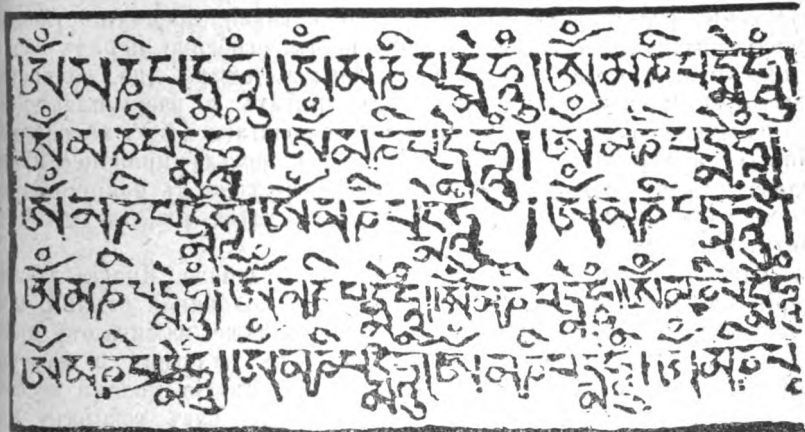 ཨོཾམཎིཔདྨེཧཱུཾ།ཨོཾམཎིཔདྨེཧཱུཾ།ཨོཾམཎིཔདྨེཧཱུཾ།
ཨོཾམཎིཔདྨེཧཱུཾ།ཨོཾམཎིཔདྨེཧཱུཾ།ཨོཾམཎིཔདྨེཧཱུཾ།
ཨོཾམཎིཔདྨེཧཱུཾ།ཨོཾམཎིཔདྨེཧཱུཾ།ཨོཾམཎིཔདྨེཧཱུཾ།
ཨོཾམཎིཔདྨེཧཱུཾ།ཨོཾམཎིཔདྨེཧཱུཾ།ཨོཾམཎིཔདྨེཧཱུཾ།།ཨོཾམཎིཔདྨེཧཱུཾ
ཨོཾམཎིཔདྨེཧཱུཾ།ཨོཾམཎིཔདྨེཧཱུཾ།ཨོཾམཎིཔདྨེཧཱུཾ།ཨོཾམཎིཔ